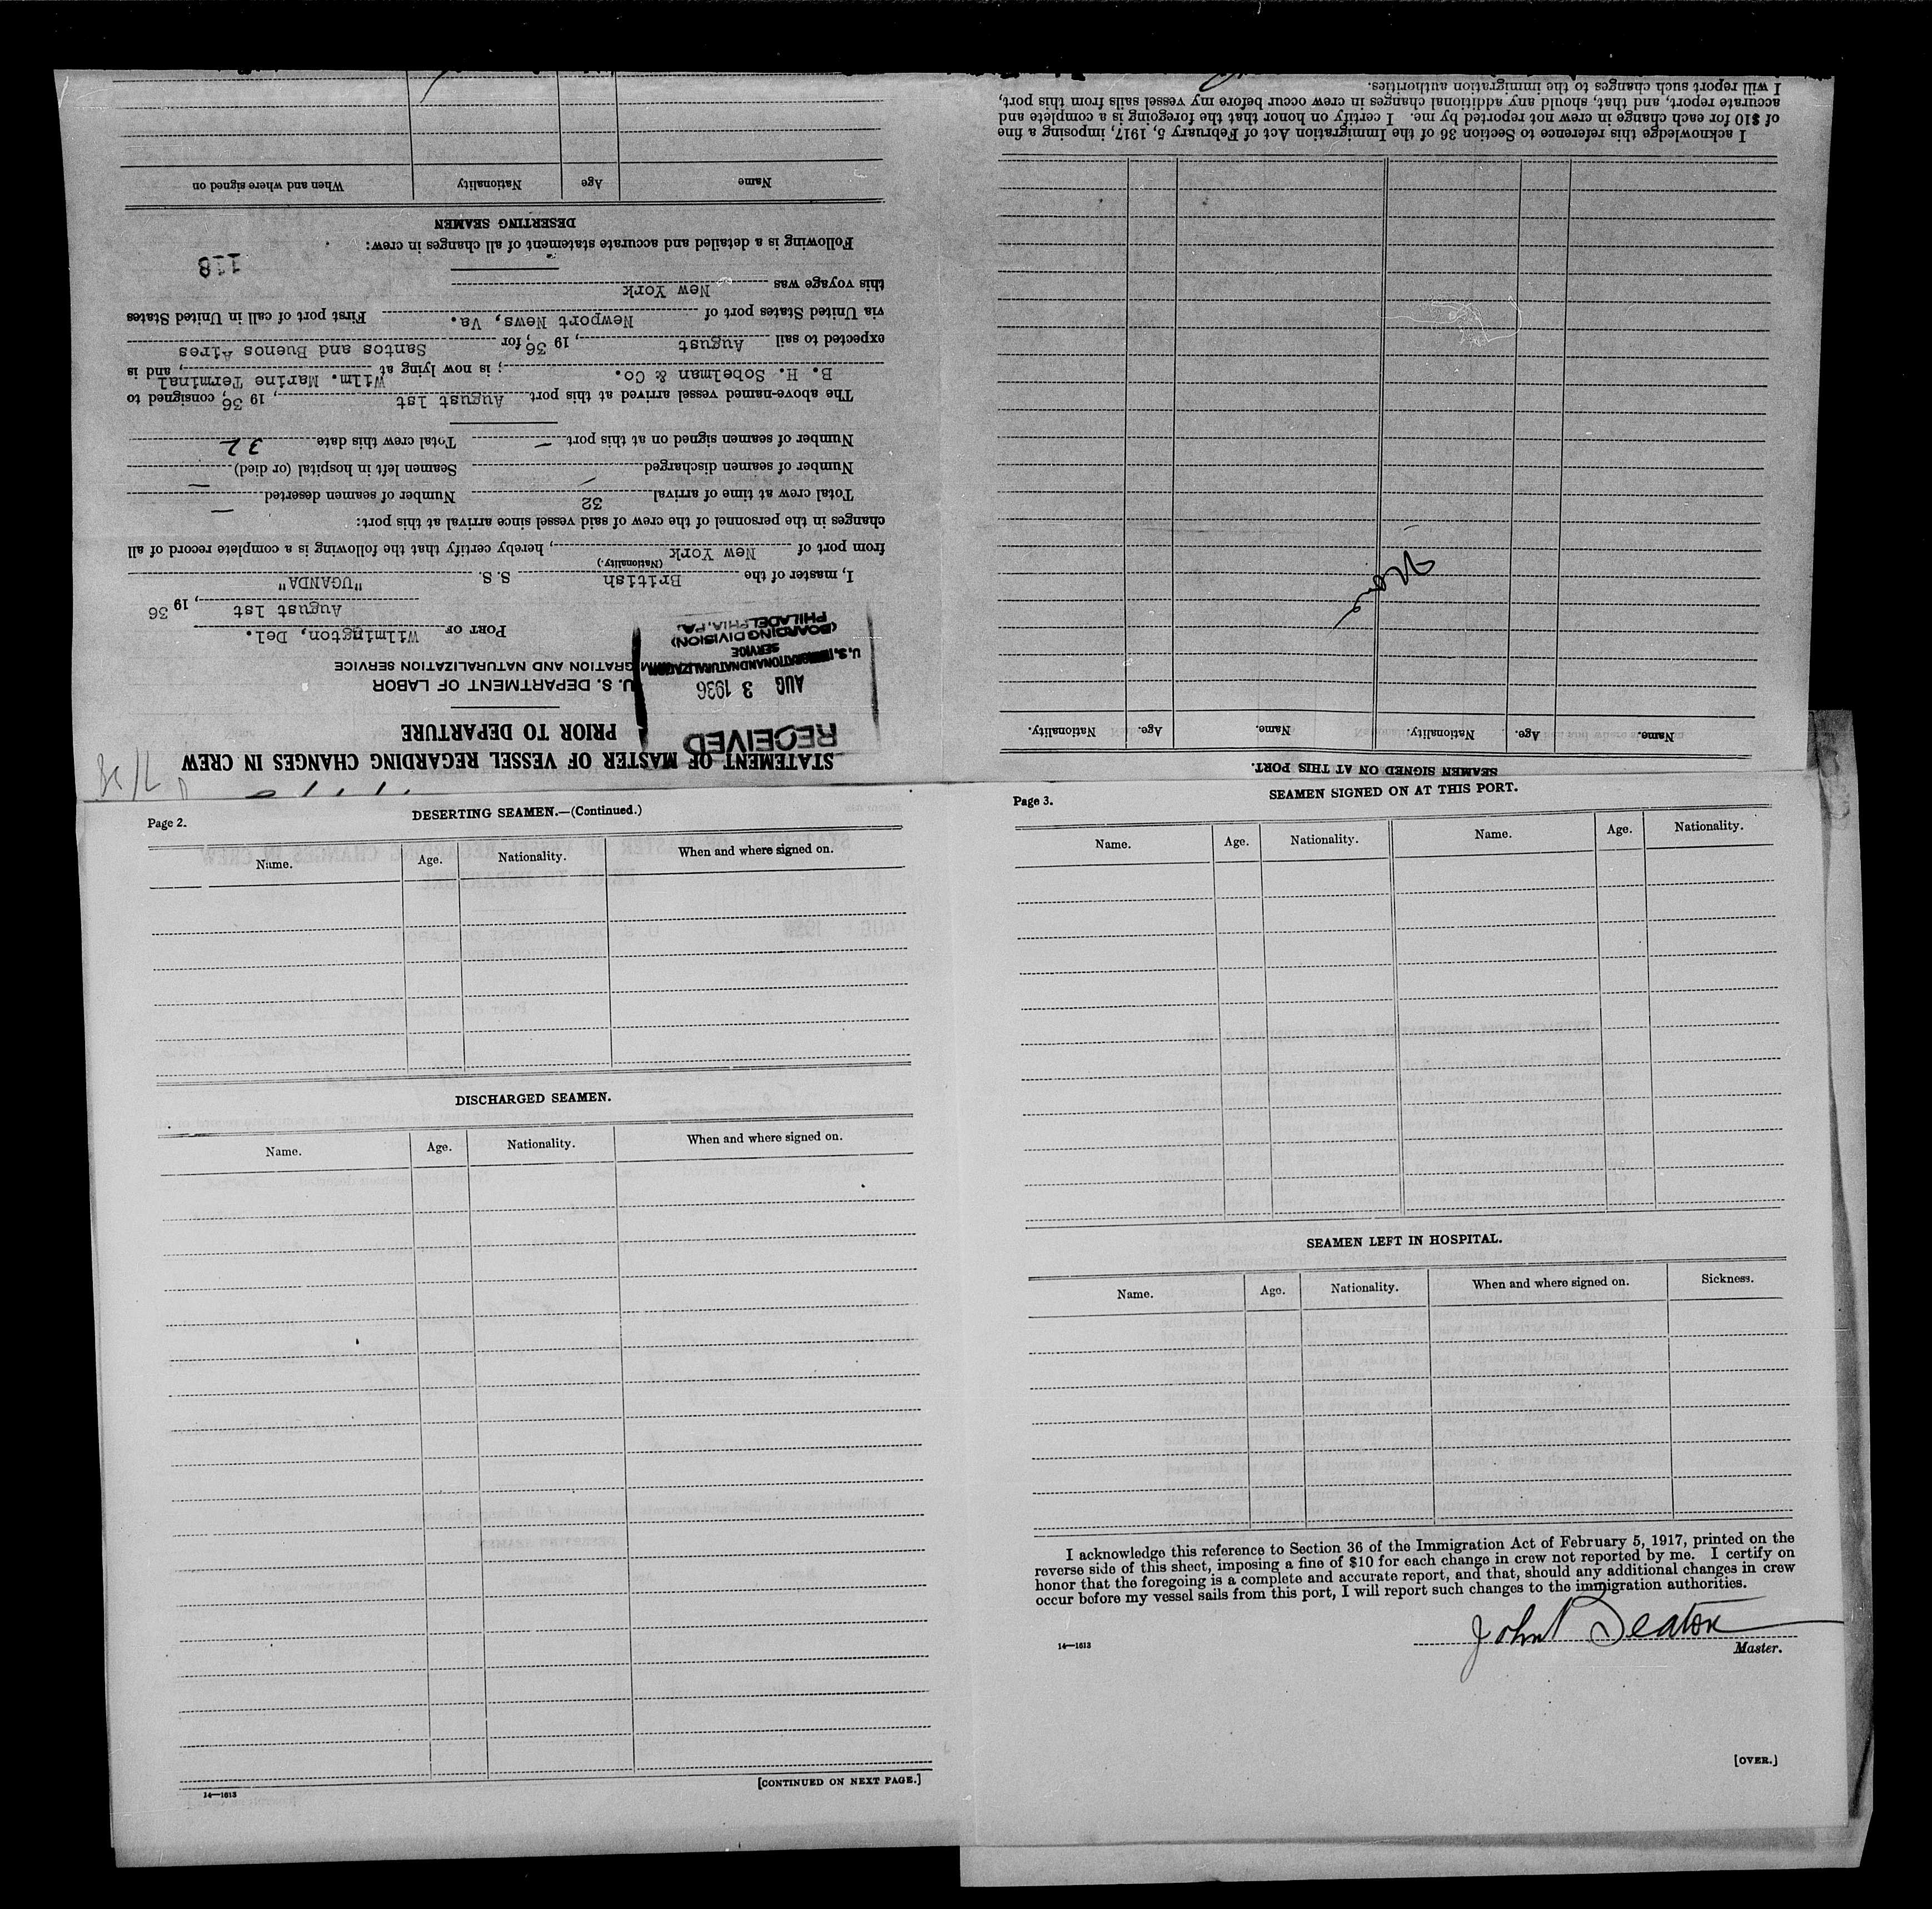 STATEMENT OF MASTER OF VESSEL REGARDING CHANGES IN CREW
PRIOR TO DEPARTURE
RECEIVED
AUG 3 1936
U.S. IMMIGRATION AND NATURALIZATION
SERVICE
(BOARDING DIVISION)
PHILADELPHIA, PA.
U. S. DEPARTMENT OF LABOR
IMMIGRATION AND NATURALIZATION SERVICE
PORT OF Wilmington, Del.
August 1st, 19 36
I, master of the British S. S. "UGANDA"
(Nationality.)
from port of New York, hereby certify that the following is a complete record of all
changes in the personnel of the crew of said vessel since arrival at this port:
Total crew at time of arrival 32 Number of seamen deserted —
Number of seamen discharged — Seamen left in hospital (or died) —
Number of seamen signed on at this port — Total crew this date 32
The above-named vessel arrived at this port August 1st, 19 36, consigned to
B. H. Sobelman & Co.; is now lying at Wilm. Marine Terminal, and is
expected to sail August, 19 36, for Santos and Buenos Aires
via United States port of Newport News, Va. First port of call in United States
this voyage was New York
118
Following is a detailed and accurate statement of all changes in crew:
DESERTING SEAMEN
Name Age Nationality When and where signed on
SEAMEN SIGNED ON AT THIS PORT.
Name. Age. Nationality. Name. Age. Nationality.
None
I acknowledge this reference to Section 36 of the Immigration Act of February 5, 1917, imposing a fine
of $10 for each change in crew not reported by me. I certify on honor that the foregoing is a complete and
accurate report, and that, should any additional changes in crew occur before my vessel sails from this port,
I will report such changes to the immigration authorities.
Page 2.
DESERTING SEAMEN.—(Continued.)
Name. Age. Nationality. When and where signed on.
DISCHARGED SEAMEN.
Name. Age. Nationality. When and where signed on.
14—1613
[CONTINUED ON NEXT PAGE.]
Page 3.
SEAMEN SIGNED ON AT THIS PORT.
Name. Age. Nationality. Name. Age. Nationality.
SEAMEN LEFT IN HOSPITAL.
Name. Age. Nationality. When and where signed on. Sickness.
I acknowledge this reference to Section 36 of the Immigration Act of February 5, 1917, printed on the
reverse side of this sheet, imposing a fine of $10 for each change in crew not reported by me. I certify on
honor that the foregoing is a complete and accurate report, and that, should any additional changes in crew
occur before my vessel sails from this port, I will report such changes to the immigration authorities.
John Deaton
14—1613
Master.
[OVER.]